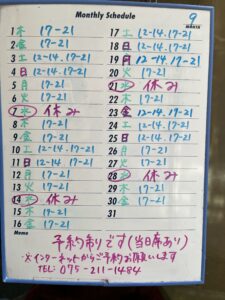 Monthly Schedule
9
MONTH
1 木 17-21
2 金 17-21
3 土 12-14.17-21
4 日 12-14.17-21
5 月 17-21
6 火 17-21
7 水 休み
8 木 17-21
9 金 17-21
10 土 12-14.17-21
11 日 12-14 17-21
12 月 17-21
13 火 17-21
14 水 休み
15 木 17-21
16 金 17-21
17 土 12-14.17-21
18 日 12-14.17-21
19 月 12-14.17-21
20 火 17-21
21 水 休み
22 木 17-21
23 金 12-14.17-21
24 土 12-14.17-21
25 日 12-14.17-21
26 月 17-21
27 火 17-21
28 水 休み
29 木 17-21
30 金 17-21
31
Memo
予約制です(当日席あり)
※インターネットからご予約お願いします
TEL: 075-211-1484